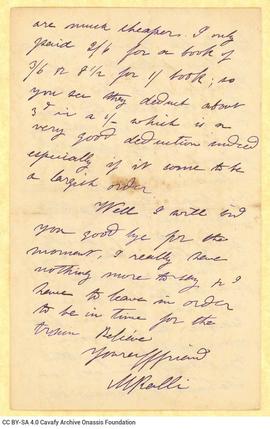 are much cheaper. I only
paid 2/6 for a book of
3/6 or 8½ for 1/ book; so
you see they deduct about
3d in a 1/- which is a
very good deduction indeed
especially if it come to be
a largish order
Well I will bid
you good bye for the
moment, I really have
nothing more to say & I
have to leave in order
to be in time for the
tram Believe
Your affriend
MRalli
CC BY-SA 4.0 Cavafy Archive Onassis Foundation